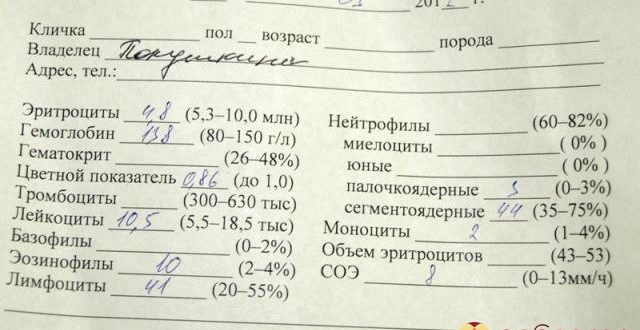 201 г.
Кличка пол возраст порода
Владелец
Адрес, тел.:
Эритроциты 4,8 (5,3–10,0 млн)
Гемоглобин 138 (80–150 г/л)
Гематокрит (26–48%)
Цветной показатель 0,86 (до 1,0)
Тромбоциты (300–630 тыс)
Лейкоциты 10,5 (5,5–18,5 тыс)
Базофилы (0–2%)
Эозинофилы 10 (2–4%)
Лимфоциты 41 (20–55%)
Нейтрофилы (60–82%)
миелоциты ( 0% )
юные ( 0% )
палочкоядерные 3 (0–3%)
сегментоядерные 44 (35–75%)
Моноциты 2 (1–4%)
Объем эритроцитов (43–53)
СОЭ 8 (0–13мм/ч)